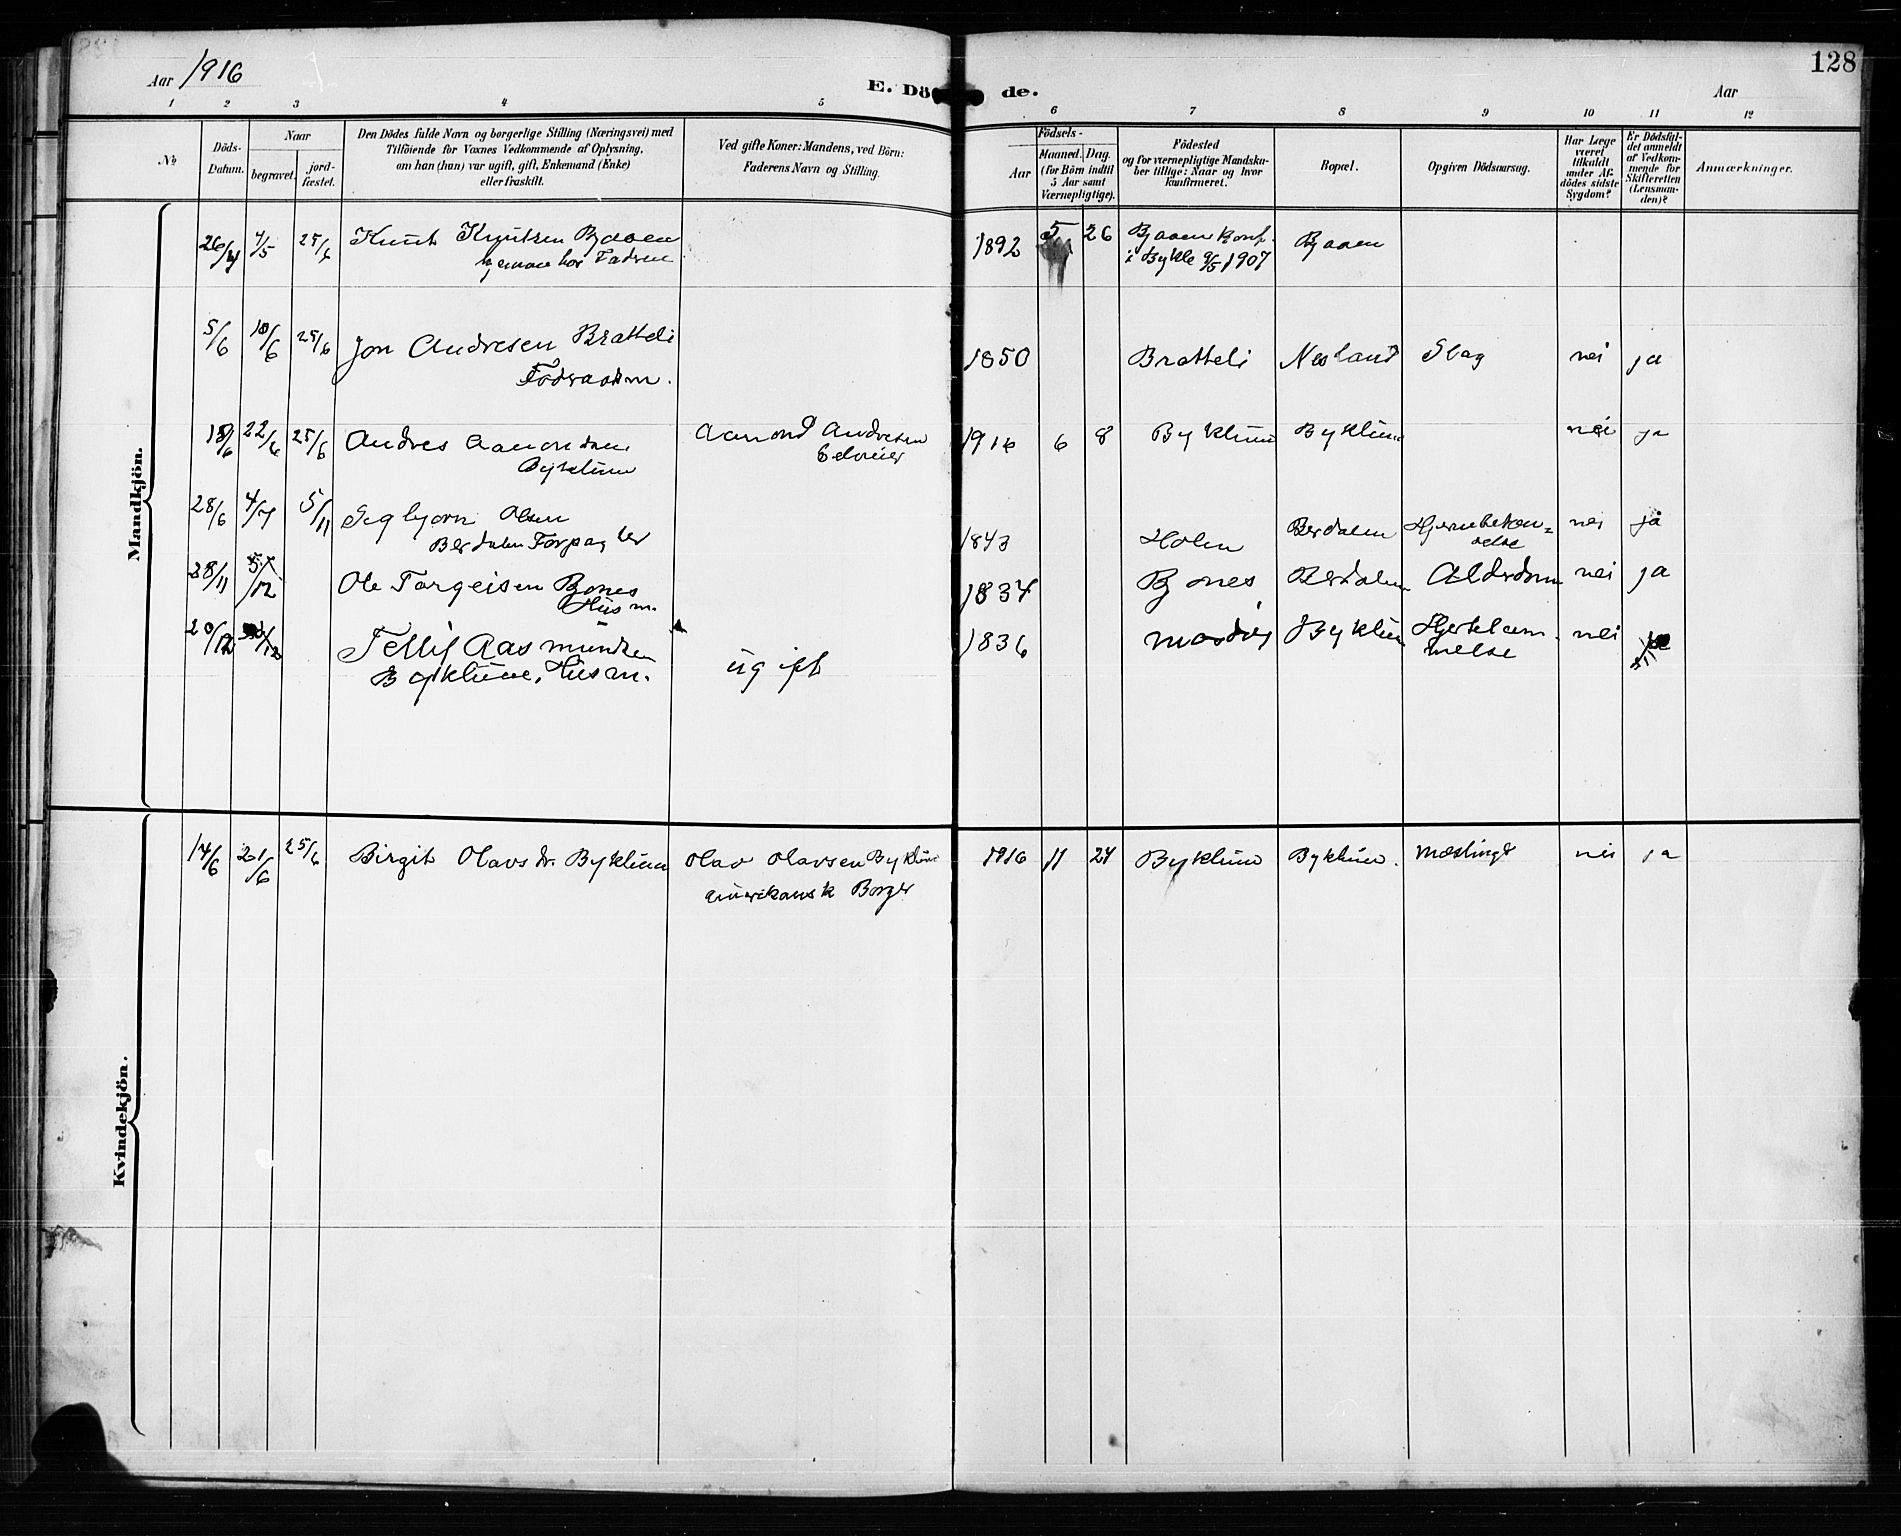 128
Aar 1916
E. Döde.
Aar
1 2 3 4 5 6 7 8 9 10 11 12
No
Döds-
Datum.
Naar
begravet.
jord-
fæstet.
Den Dödes fulde Navn og borgerlige Stilling (Næringsvei) med
Tilföiende for Voxnes Vedkommende af Oplysning,
om han (hun) var ugift, gift, Enkemand (Enke)
eller fraskilt.
Ved gifte Koner: Mandens, ved Börn:
Faderens Navn og Stilling.
Födsels-
Aar
Maaned.
Dag.
(for Börn indtil
5 Aar samt
Værnepligtige).
Födested
og for værnepligtige Mandska-
ber tillige: Naar og hvor
konfirmeret.
Bopæl.
Opgiven Dödsaarsag.
Har Læge
været
tilkaldt
under Af-
dödes sidste
Sygdom?
Er Dödsfal-
det anmeldt
af Vedkom-
mende for
Skifteretten
(Lensman-
den)?
Anmærkninger.
Mandkjön.
26/4 4/5 25/6 Knut Knutsen Bjaaen
hjemme hos Fadren
1892 5 26 Bjaaen Konf.
i Bykle 9/5 1907
Bjaaen
5/6 10/6 25/6 Jon Andresen Bratteli
Föderaadsm.
1850 Bratteli Nesland Slag nei ja
22/6 25/6 Andres Aamondsen
Byklum
Aamond Andresen
Selveier
1916 6 8 Byklum Byklum nei ja
28/6 4/7 5/11 Olsen
Berdalen Forpagter
1843 Holen Berdalen nei ja
28/11 5/12 Ole Torgeisen Bjones
Husm.
1834 Bjones Berdalen Alderdom nei ja
20/12 Aasmundsen
Byklum, Husm.
ugift
1836 Byklum nei
Kvindekjön.
14/6 21/6 25/6 Birgit Olavsdr. Byklum
Olav Olavsen Byklum
amerikansk Borger
1916 11 24 Byklum Byklum. nei ja